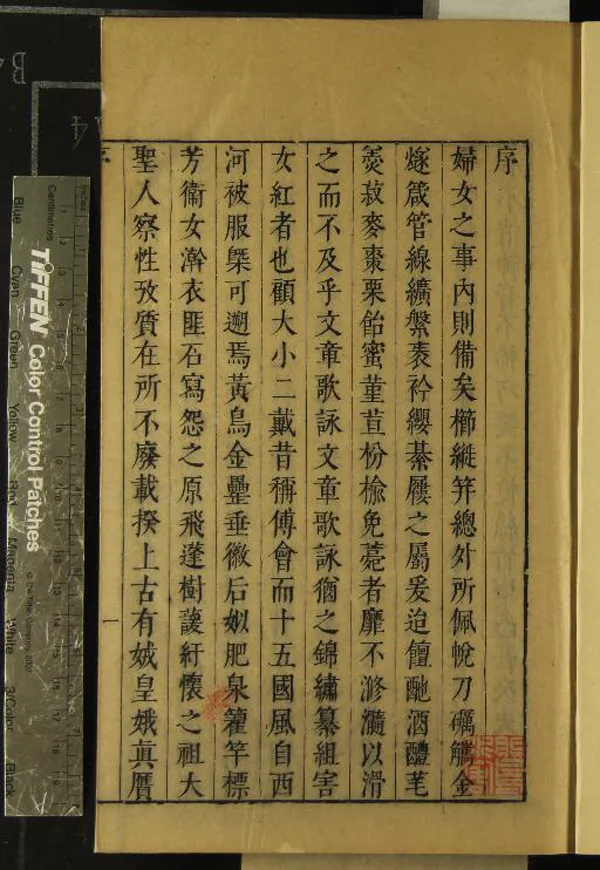 序
婦女之事內則備矣櫛縰笄總外所佩帨刀礪觿金
燧箴管線纊槃袠衿纓綦屨之屬爰迨饘酏酒醴芼
羹菽麥棗栗飴蜜菫荁枌榆免薧者靡不滫瀡以滑
之而不及乎文章歌詠文章歌詠猶之錦繡纂組害
女紅者也顧大小二戴昔稱傅會而十五國風自西
河被服槩可遡焉黃鳥金罍垂徽后姒肥泉籊竿標
芳衛女澣衣匪石寫怨之原飛蓬樹諼紓懷之祖大
聖人察性攷質在所不廢載揆上古有娀皇娥真贋
序
一
B4
A4
Inches
Centimetres
TIFFEN Color Control Patches
© The Tiffen Company, 2007
Blue
Cyan
Green
Yellow
Red
Magenta
White
3/Color
Black